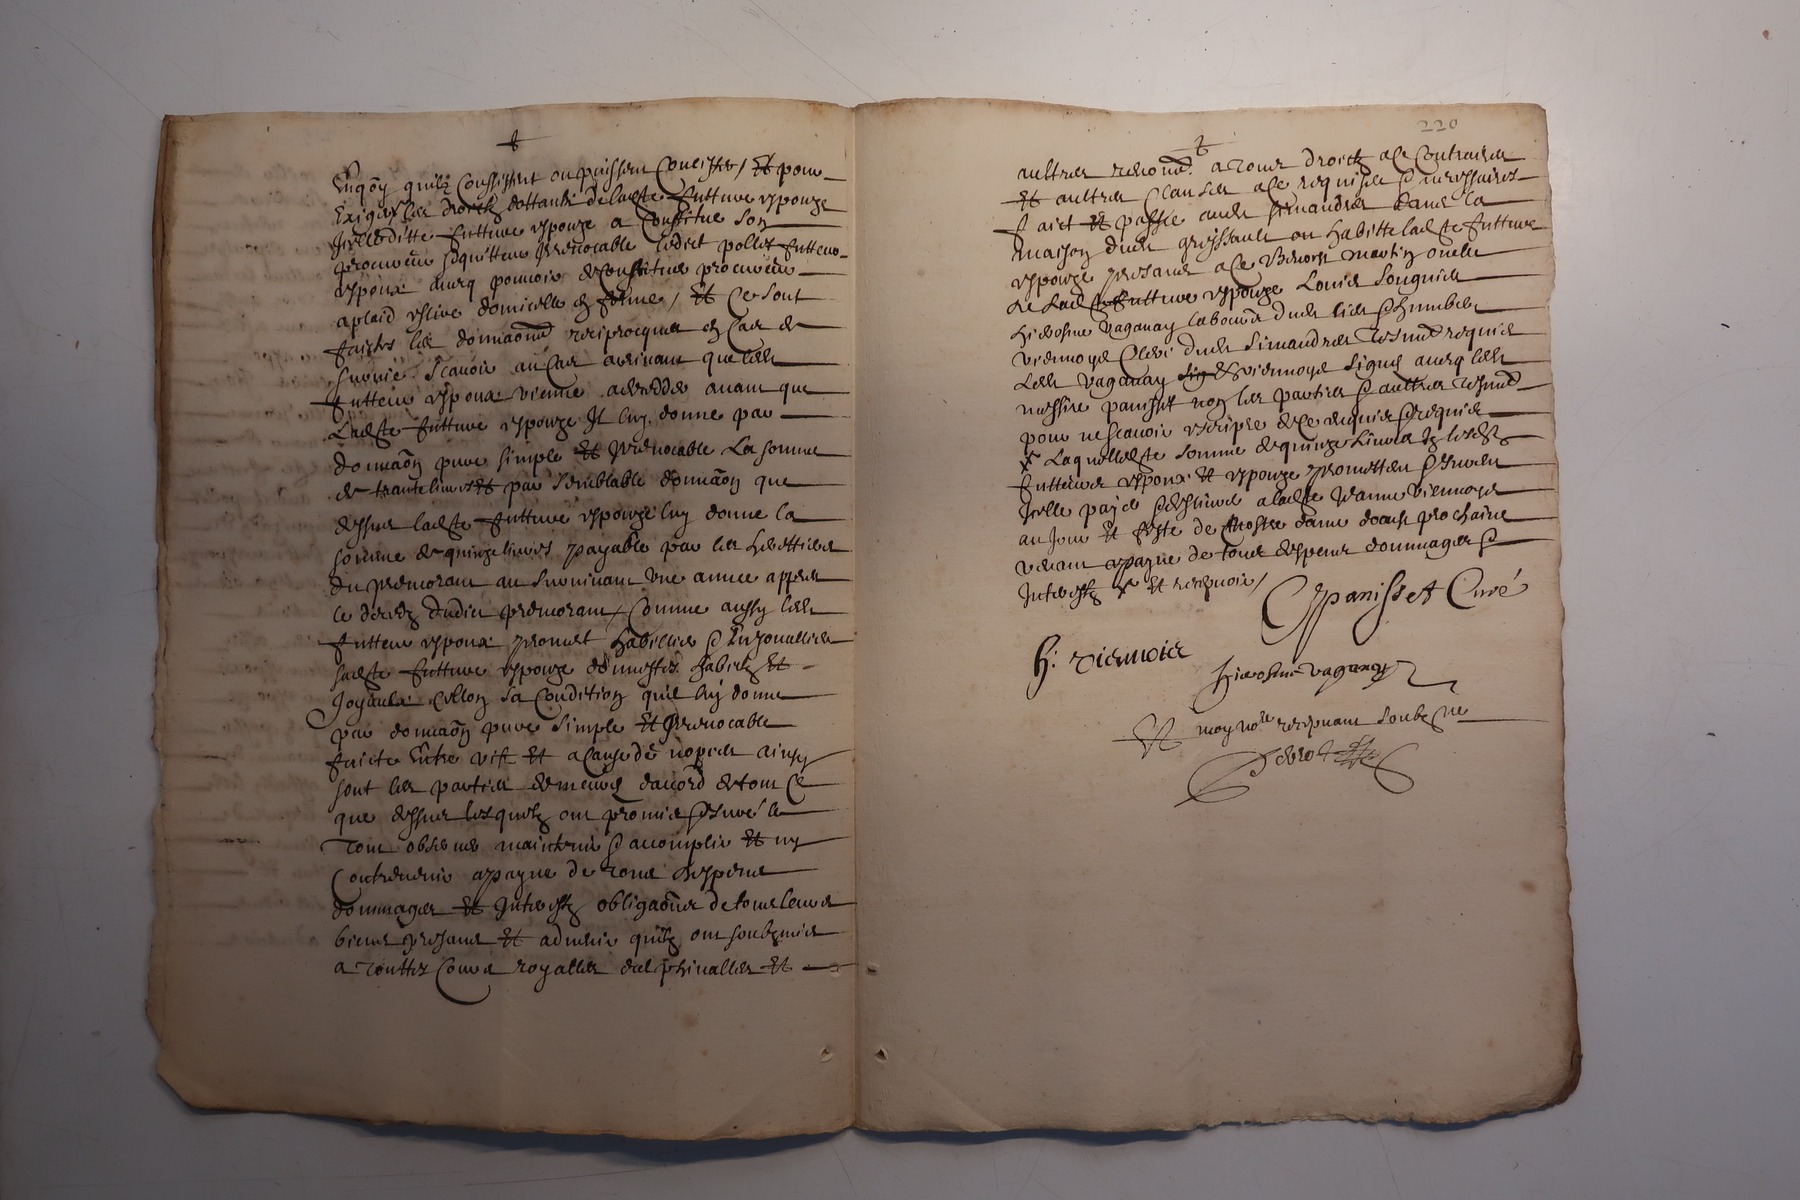 En quoy quilz Consistent ou puissent Consister / Et pour
Exiger les droictz dottaulx de ladte futture espouze
Icelle ditte futture espouze a Constitue son
procureur Irrevocable ledict pollet futteur
espoux avecq pouvoir de Constituer procureur
a plaid eslire domicille en forme / Et Ce sont
faictes les donnaōns reciprocques en Cas de
survie Scavoir au Cas advinant que ledt
futteur espoux vienne a decedder avant que
Ladte futture espouze Il luy donne par
donnaōn pure simple Et Irrevocable La somme
de trante livres Et par semblable donnaōn que
dessus ladte futture espouze luy donne la
somme de quinze livres payable par les herettiers
du premorant au survivant une annee appres
le deces dudict premorant / Comme aussy ledt
futteur espoux promet habillier & Enjouallier
ladte futture espouze dhonnestes habitz Et
Joyaulx Cellon sa Condition quil luy donne
par donnaōn pure simple Et Irrevocable
faicte Entre vifz Et a Cause de nopces ainsy
sont les parties demeures daccord de tout Ce
que dessus lesquelz ont promis & jure le
Tout observer maintenir & accomplir Et ny
Contrevenir a payne de tous despens
dommages Et Interestz obligaōns de tous leurs
biens presans Et advenir quilz ont soubzmis
a Touttes Cours royalles delphinalles Et
220
aultres renond. a Tous droictz a Ce Contraires
Et aultres Clauses a Ce requises & necessaires
faict Et passé audt simandres dans la
maison dudt grissault ou habitte ladte futture
espouze presans a Ce Benoist martin oncle
de Ladte futture espouze Louis Souquier
hierosme vaganay laboureur dudt lieu & humbert
viennoys Clerc dudt Simandres Tesmoings requis
Ledt vaganay Et viennoys signes avecq ledt
messire panisset non les parties & aultres tesmoings
pour ne scavoir escripre de Ce enquis & requis
x Laquelle dte somme de quinze livres lesdtz
futteurs espoux Et espouze promettent
Icelle payer a ladte Jeanne viennoys
au Jour Et feste de Nostre dame daoust prochaine
venant a payne de tous despens dommages &
Interestz x Et recepvoir /
Cpanisset Curé
h: viennois
hierosme vaganay
Et moy nore recepvant soubzne